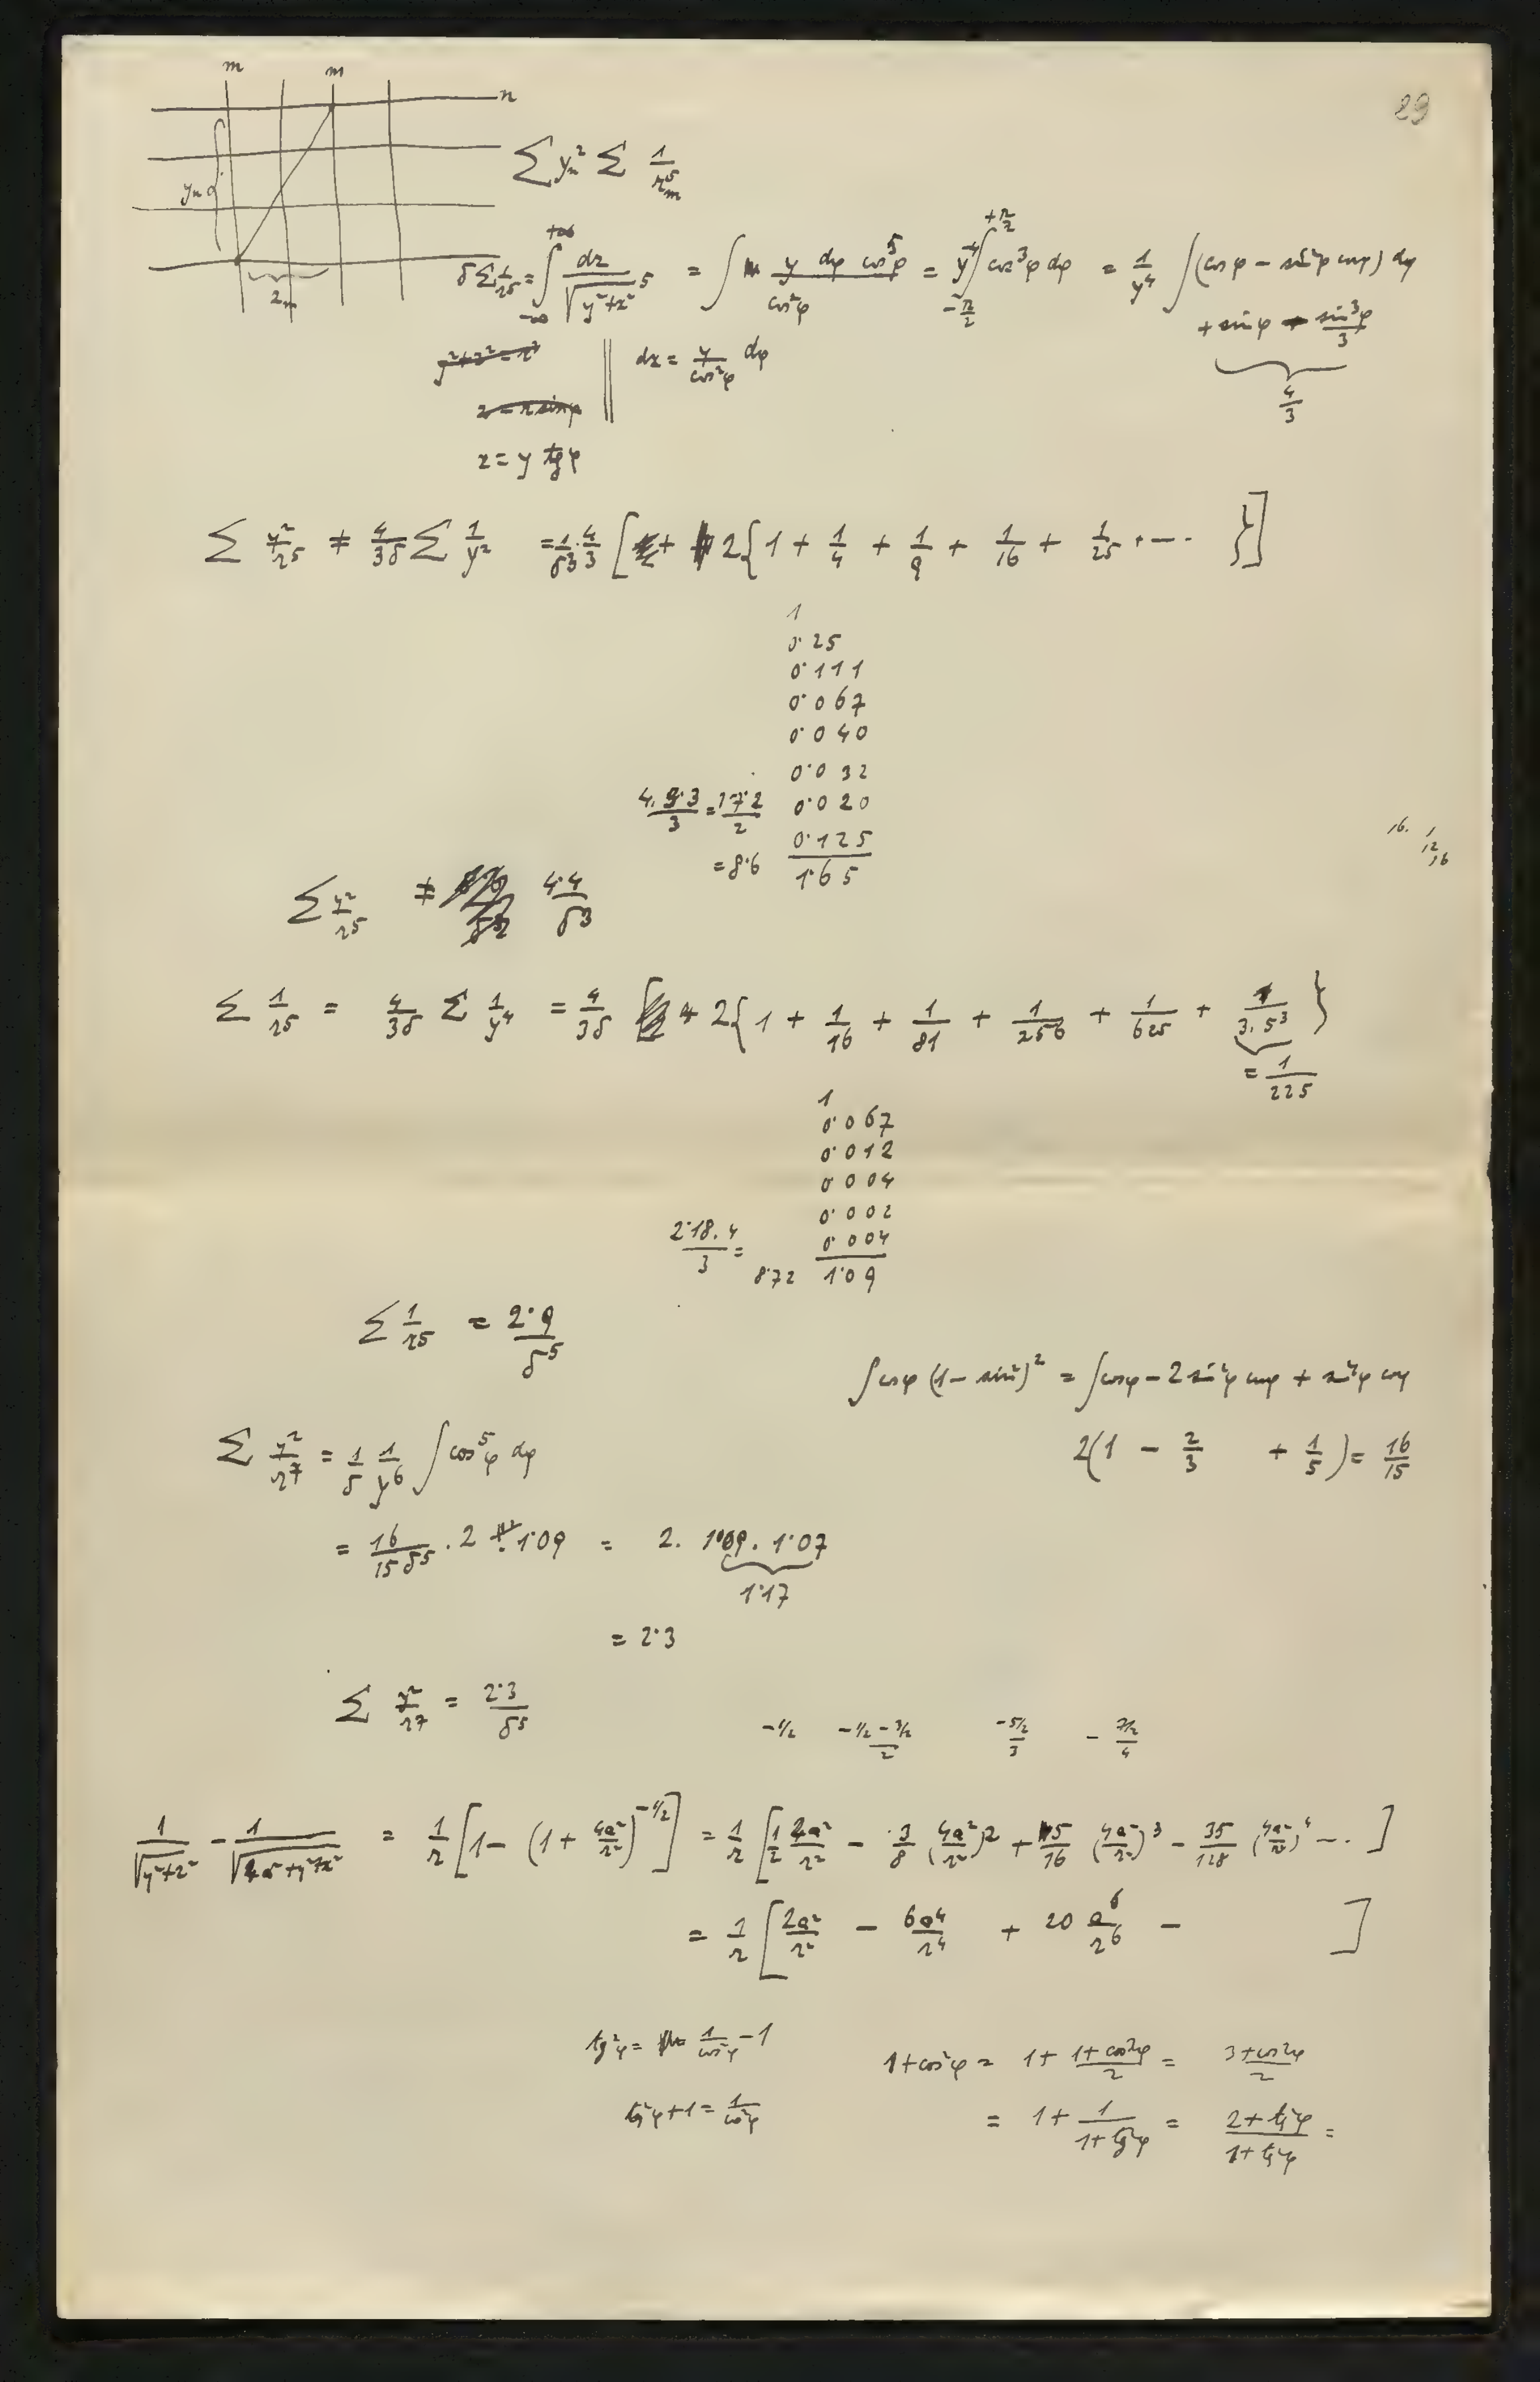 m m
n
29
yₙ
zₘ
∑ yₙ² ∑ 1/rₘ⁵
δ∑ 1/r⁵ = ∫₋∞^{+∞} dz/√(y²+z²)⁵ = ∫ y dφ cos⁵φ / cos²φ = y⁻⁴ ∫_{-π/2}^{+π/2} cos³φ dφ = 1/y⁴ ∫(cos φ − sin²φ cos φ) dφ
+ sin φ − sin³φ/3
y²+z²=r² || dz = y/cos²φ dφ
4/3
z = r sin φ
z = y tg φ
∑ y²/r⁵ ≠ 4/3δ ∑ 1/y² = 1/δ³ · 4/3 [ + 2{1 + 1/4 + 1/9 + 1/16 + 1/25 + ... }]
1
0·25
0·111
0·067
0·040
0·032
4. 3·3/3 = 17·2/2 0·020
0·125
= 8·6 1·65
16. 1/12
∑ y²/r⁵ ≠ 4·4/δ³
∑ 1/r⁵ = 4/3δ ∑ 1/y⁴ = 4/3δ [ + 2{1 + 1/16 + 1/81 + 1/256 + 1/625 + 1/3.5³ }
= 1/225
1
0·067
0·012
0·004
0·002
0·004
2·18. 4/3 = 8·72 1·09
∑ 1/r⁵ = 2·9/δ⁵
∫cosφ (1 − sin²)² = ∫cosφ − 2 sin²φ cosφ + sin⁴φ cosφ
2(1 − 2/3 + 1/5) = 16/15
∑ y²/r⁷ = 1/δ 1/y⁶ ∫cos⁵φ dφ
= 16/15δ⁵ . 2 . 1·09 = 2. 1·09. 1·07
1·17
= 2·3
∑ y²/r⁷ = 2·3/δ⁵
−1/2 −1/2 −3/2 /2 −5/2 /3 − 7/2 /4
1/√(y²+z²) − 1/√(4a²+y²+z²) = 1/r [1 − (1 + 4a²/r²)^{−1/2}] = 1/r [1/2 4a²/r² − 3/8 (4a²/r²)² + 5/16 (4a²/r²)³ − 35/128 (4a²/r²)⁴ − ... ]
= 1/r [2a²/r² − 6a⁴/r⁴ + 20 a⁶/r⁶ − ]
tg²φ = 1/cos²φ − 1
1+cos²φ = 1 + 1+cos2φ/2 = 3+cos2φ/2
tg²φ+1 = 1/cos²φ
= 1 + 1/1+tg²φ = 2+tg²φ/1+tg²φ =